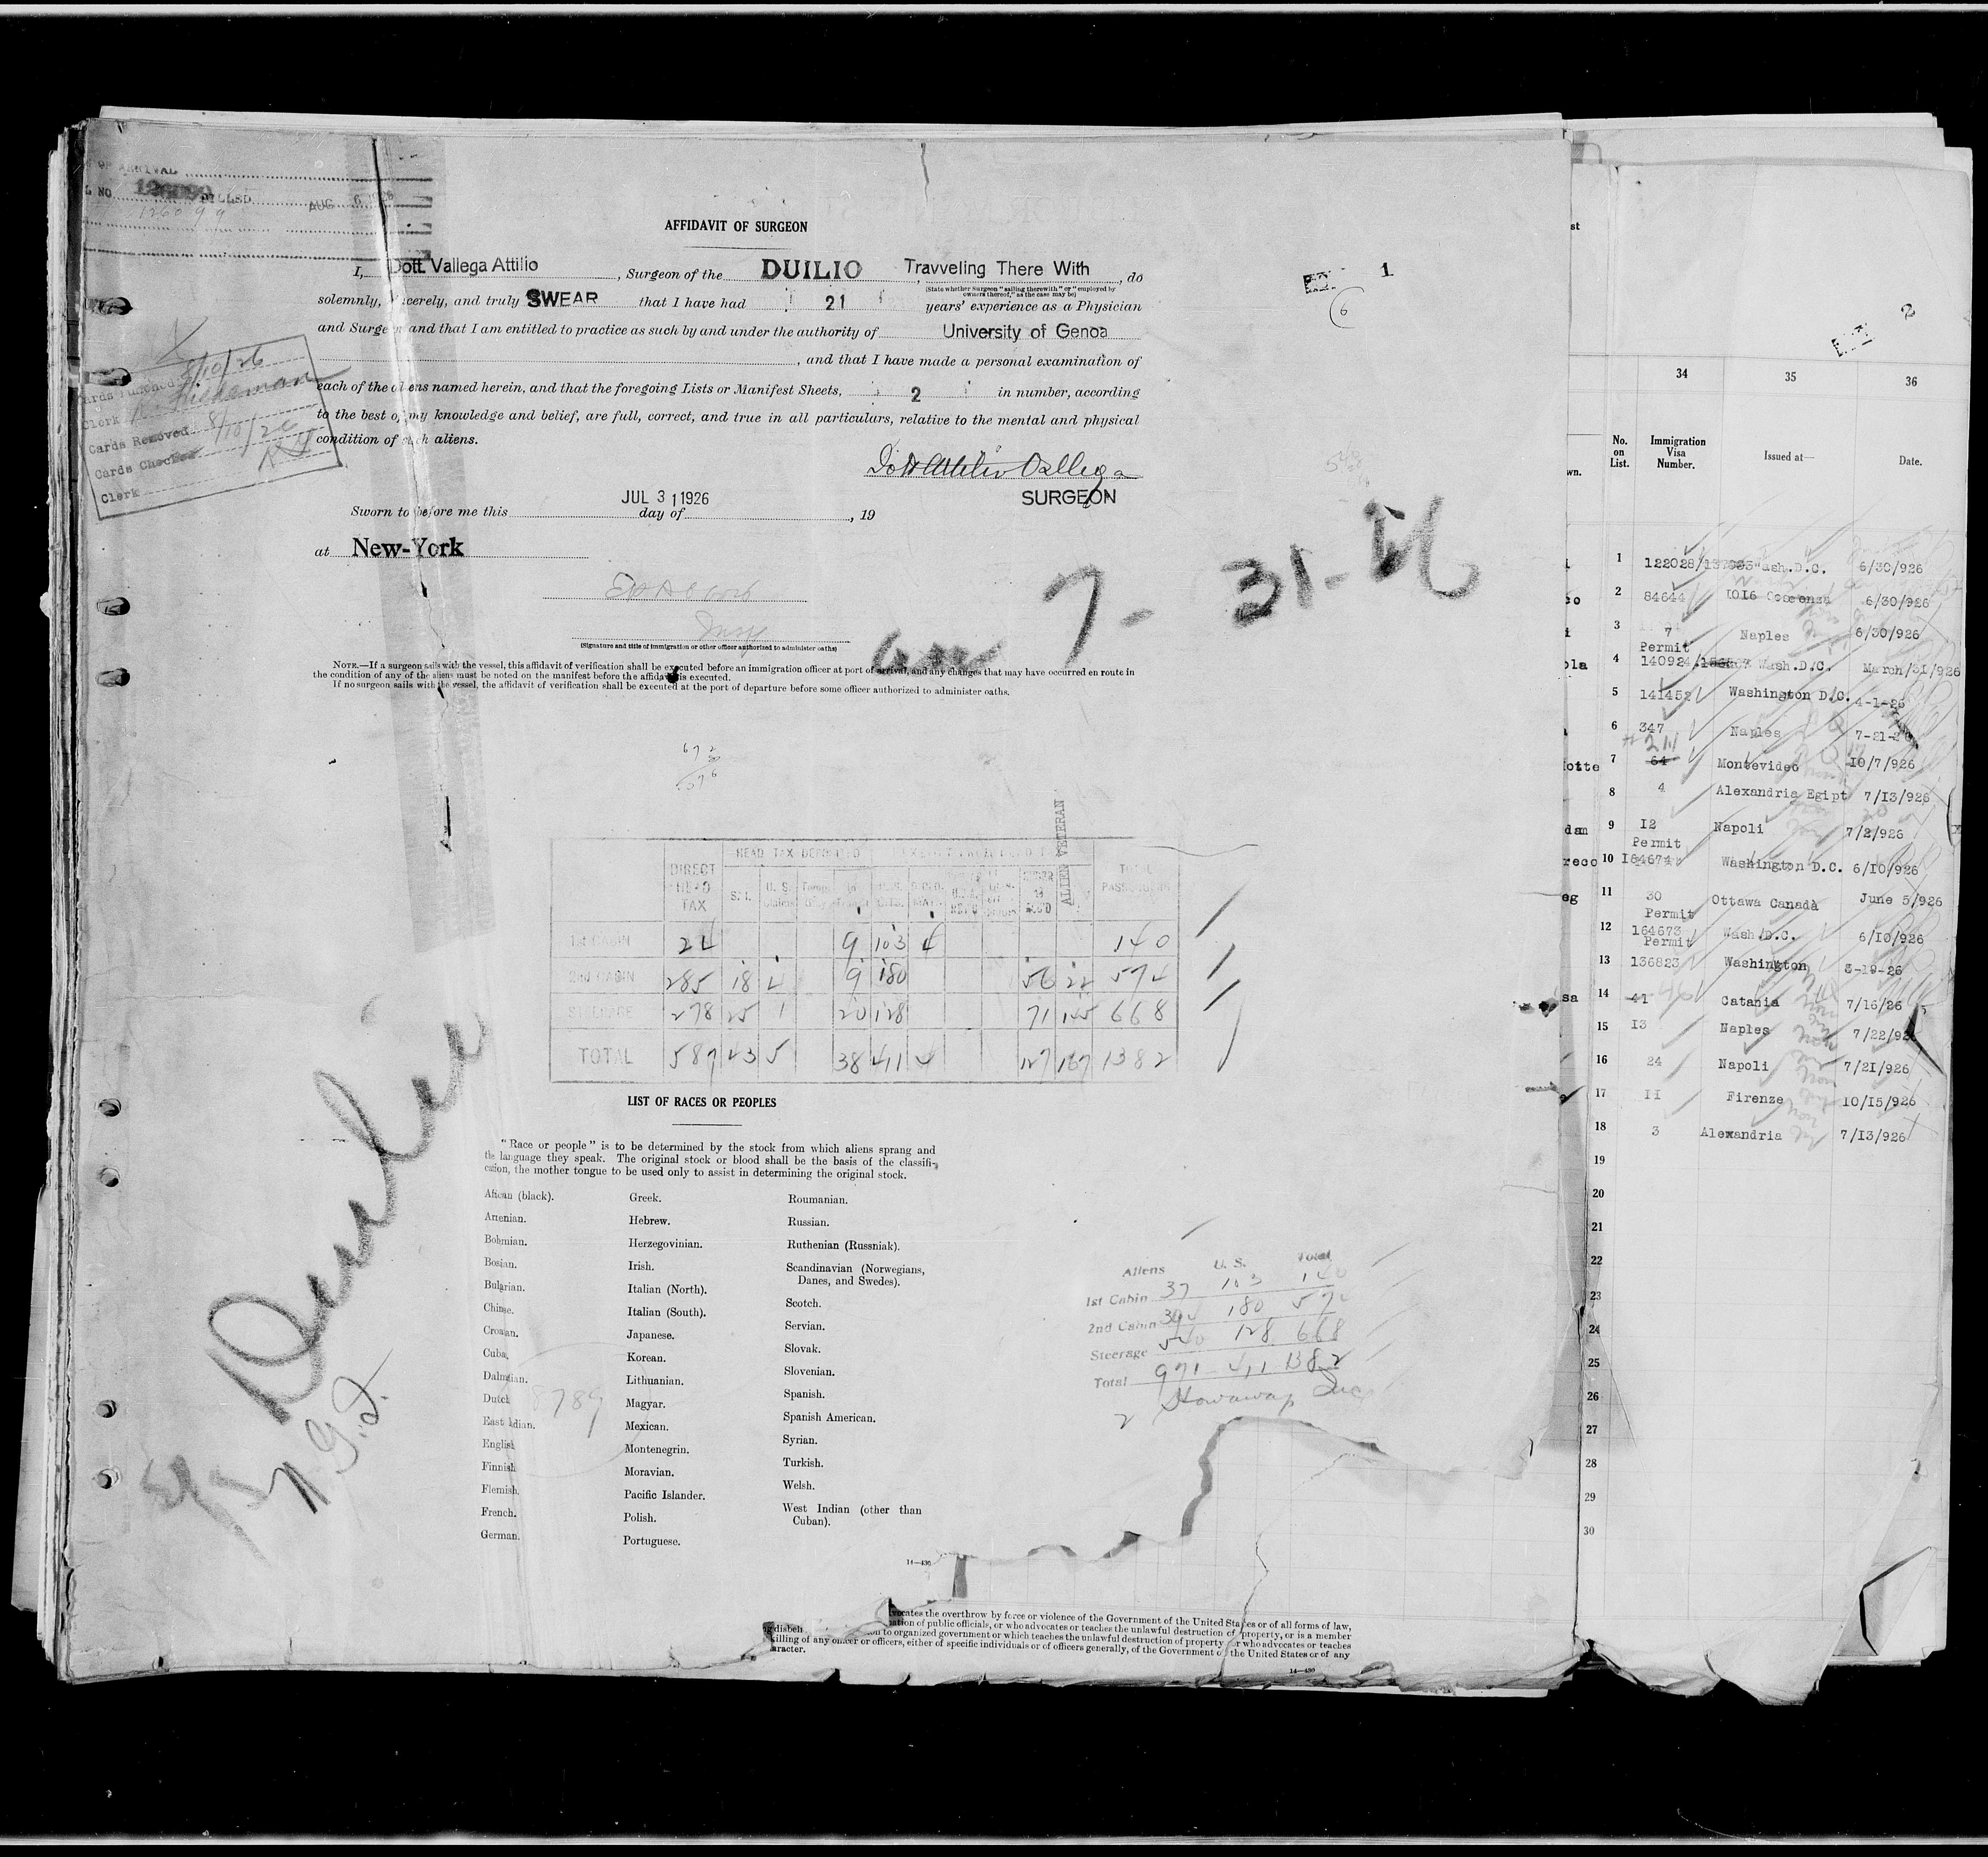 OF ARRIVAL
L NO. 126099 BILLED AUG 6 1926
126099
AFFIDAVIT OF SURGEON
I, Dott. Vallega Attilio, Surgeon of the DUILIO, Travveling There With, do
(State whether Surgeon "sailing therewith" or "employed by
owners thereof," as the case may be)
solemnly, sincerely, and truly SWEAR that I have had 21 years' experience as a Physician
and Surgeon and that I am entitled to practice as such by and under the authority of University of Genoa
, and that I have made a personal examination of
each of the aliens named herein, and that the foregoing Lists or Manifest Sheets, 2 in number, according
to the best of my knowledge and belief, are full, correct, and true in all particulars, relative to the mental and physical
condition of such aliens.
Dott Attilio Vallega
SURGEON
Sworn to before me this JUL 31 1926 day of , 19
at New-York
Insp
(Signature and title of immigration or other officer authorized to administer oaths)
NOTE.—If a surgeon sails with the vessel, this affidavit of verification shall be executed before an immigration officer at port of arrival, and any changes that may have occurred en route in
the condition of any of the aliens must be noted on the manifest before the affidavit is executed.
If no surgeon sails with the vessel, the affidavit of verification shall be executed at the port of departure before some officer authorized to administer oaths.
1
6
Cards Punched 8/10/26
Clerk
Cards Removed 8/10/26
Cards Checked
Clerk
7-31-26
am
Duilio
N.G.I.
HEAD TAX DEPOSITED
ALIEN VETERAN
DIRECT HEAD TAX S.I. U.S. Claims TOTAL PASSENGERS
1st CABIN 24 9 103 4 140
2nd CABIN 285 18 4 9 180 56 22 574
STEERAGE 278 25 1 20 128 71 145 668
TOTAL 587 43 5 38 411 4 127 167 1382
LIST OF RACES OR PEOPLES
"Race or people" is to be determined by the stock from which aliens sprang and
the language they speak. The original stock or blood shall be the basis of the classifi-
cation, the mother tongue to be used only to assist in determining the original stock.
African (black).
Armenian.
Bohemian.
Bosnian.
Bulgarian.
Chinese.
Croatian.
Cuban.
Dalmatian.
Dutch.
East Indian.
English.
Finnish.
Flemish.
French.
German.
Greek.
Hebrew.
Herzegovinian.
Irish.
Italian (North).
Italian (South).
Japanese.
Korean.
Lithuanian.
Magyar.
Mexican.
Montenegrin.
Moravian.
Pacific Islander.
Polish.
Portuguese.
Roumanian.
Russian.
Ruthenian (Russniak).
Scandinavian (Norwegians,
Danes, and Swedes).
Scotch.
Servian.
Slovak.
Slovenian.
Spanish.
Spanish American.
Syrian.
Turkish.
Welsh.
West Indian (other than
Cuban).
14—430
8789
Aliens U.S. Total
1st Cabin 37 103 140
2nd Cabin 394 180 574
Steerage 540 128 668
Total 971 411 1382
2 Stowaways Inc
vocates the overthrow by force or violence of the Government of the United States or of all forms of law,
nation of public officials, or who advocates or teaches the unlawful destruction of property, or is a member
g disbeli on to organized government or which teaches the unlawful destruction of property or who advocates or teaches
killing of any officer or officers, either of specific individuals or of officers generally, of the Government of the United States or of any
aracter.
14—430
2
st
wn.
34 35 36
No. on List. Immigration Visa Number. Issued at— Date.
1 122028/ Wash.D.C. 6/30/926
so 2 84644 1016 Cosenza 6/30/926
i 3 7 Naples 6/30/926
Permit
ola 4 140924 Wash.D.C. March/31/926
5 141452 Washington D.C. 4-1-26
6 347 Naples 7-21-26
211
lotte 7 64 Montevideo 10/7/926
8 4 Alexandria Egipt 7/13/926
dam 9 I2 Napoli 7/2/926
Permit
reco 10 164674 Washington D.C. 6/10/926
eg 11 30 Ottawa Canada June 5/926
Permit
12 164673 Wash.D.C. 6/10/926
Permit
13 136823 Washington 3-19-26
sa 14 41 Catania 7/16/26
15 I3 Naples 7/22/926
16 24 Napoli 7/21/926
17 II Firenze 10/15/926
18 3 Alexandria 7/13/926
19
20
21
22
23
24
25
26
27
28
29
30